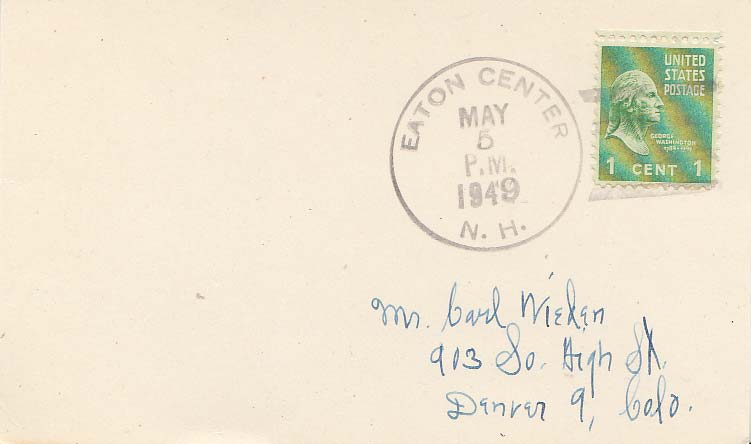 EATON CENTER
MAY
5
P.M.
1949
N. H.
UNITED
STATES
POSTAGE
GEORGE
WASHINGTON
1789-1797
1 CENT 1
Mr. Carl Wieken
903 So. High St.
Denver 9, Colo.